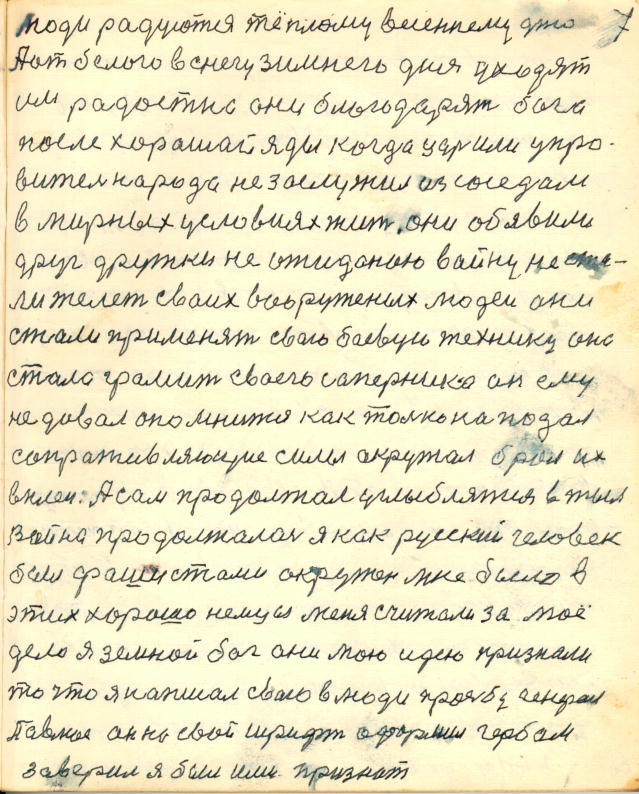 люди радуются тёплому весеннему дню 7
А от белого в снегу зимнего дня уходят
им радостно они благодарят бога
после хорошай яды когда цар или упро-
вител народа не заслужил из соседам
в мирных условиях жит, они обявили
друг дружки не ожиданою вайну не ста-
ли желет своих вооруженых людей они
стали применят свою боевую технику она
стала грамит своего саперника он ему
не довал опомнится как толко на позал
сопративляющие силы акружал брал их
в плен. А сам продолжал углыблятися в тыл
Война продолжалас я как русский человек
был фашистами окружен мне было в
этих хорошо немцы меня считали за моё
дело Я земной бог они мою идею признали
то что я написал свою в люди прозбу генерал
Павлюс он на свой шрифт оформил гербам
заверил я был ими признат